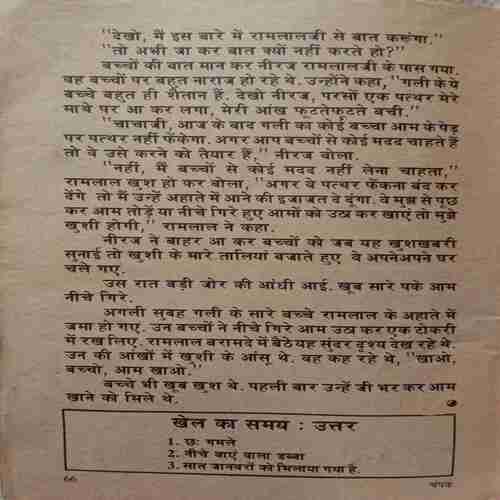 "देखो, मैं इस बारे में रामलालजी से बात करूंगा."
"तो अभी जा कर बात क्यों नहीं करते हो?"
बच्चों की बात मान कर नीरज रामलालजी के पास गया.
वह बच्चों पर बहुत नाराज हो रहे थे. उन्होंने कहा, "गली के ये
बच्चे बहुत ही शैतान हैं. देखो नीरज, परसों एक पत्थर मेरे
माथे पर आ कर लगा, मेरी आंख फटतेफटते बची."
"चाचाजी, आज के बाद गली का कोई बच्चा आम के पेड़
पर पत्थर नहीं फेंकेगा. अगर आप बच्चों से कोई मदद चाहते हैं
तो वे उसे करने को तैयार हैं," नीरज बोला.
"नहीं, मैं बच्चों से कोई मदद नहीं लेना चाहता,"
रामलाल खुश हो कर बोला, "अगर वे पत्थर फेंकना बंद कर
देंगे तो मैं उन्हें अहाते में आने की इजाजत दे दूंगा. वे मुझ से पूछ
कर आम तोड़ें या नीचे गिरे हुए आमों को उठा कर खाएं तो मुझे
खुशी होगी," रामलाल ने कहा.
नीरज ने बाहर आ कर बच्चों को जब यह खुशखबरी
सुनाई तो खुशी के मारे तालियां बजाते हुए वे अपनेअपने घर
चले गए.
उस रात बड़ी जोर की आंधी आई. खूब सारे पके आम
नीचे गिरे.
अगली सुबह गली के सारे बच्चे रामलाल के अहाते में
जमा हो गए. उन बच्चों ने नीचे गिरे आम उठा कर एक टोकरी
में रख लिए. रामलाल बरामदे में बैठे यह सुंदर दृश्य देख रहे थे.
उन की आंखों में खुशी के आंसू थे. वह कह रहे थे, "खाओ,
बच्चो, आम खाओ."
बच्चे भी खूब खुश थे. पहली बार उन्हें जी भर कर आम
खाने को मिले थे.
खेल का समय : उत्तर
1. छः गमले
2. नीचे बाएं वाला डब्बा
3. सात जानवरों को मिलाया गया है.
66
चंपक